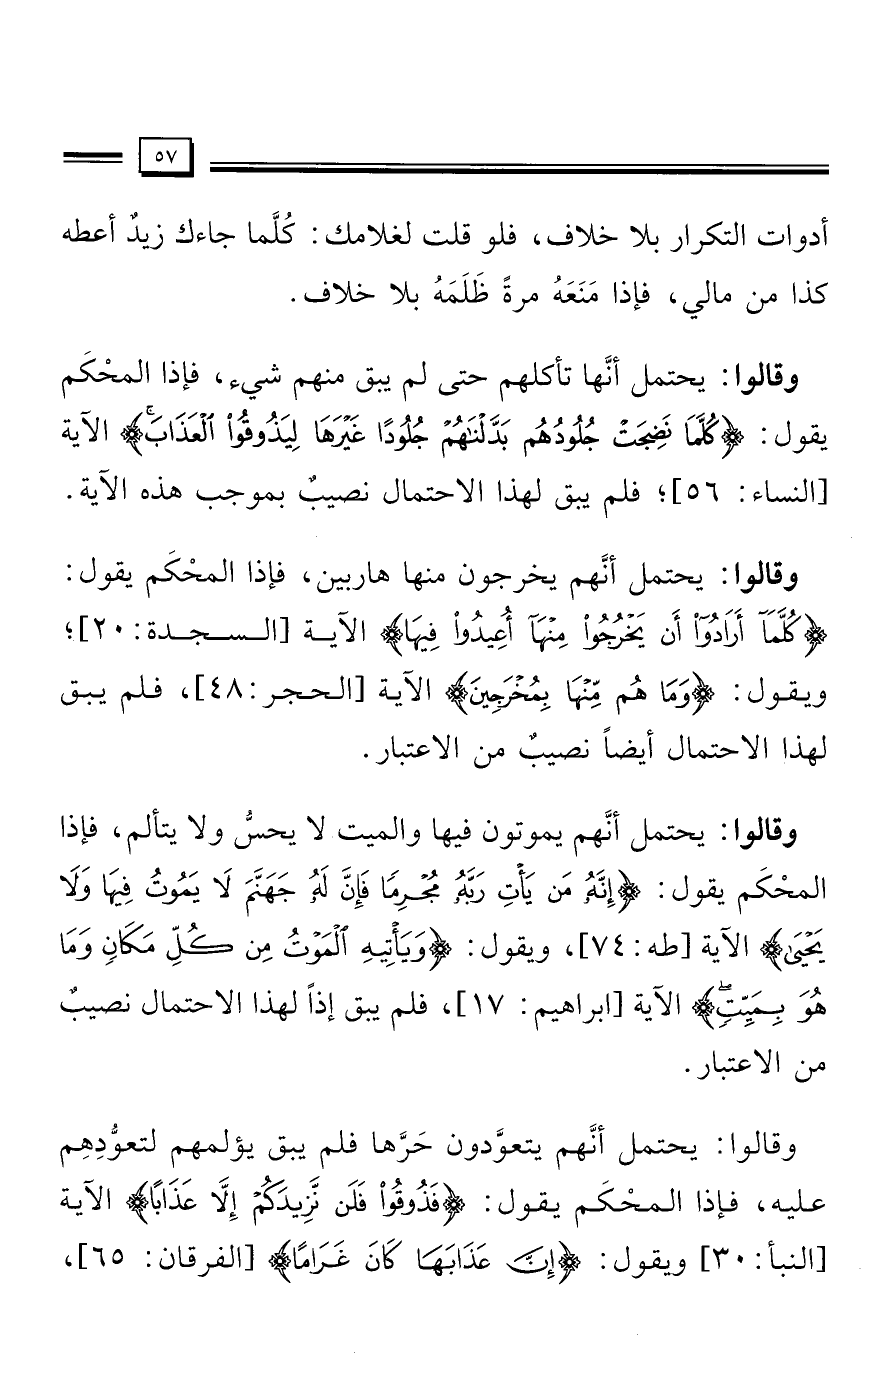 ٥٧
أدوات التكرار بلا خلاف، فلو قلت لغلامك: كُلَّما جاءك زيدٌ أعطه
كذا من مالي، فإذا مَنَعَهُ مرةً ظَلَمَهُ بلا خلاف.
وقالوا: يحتمل أنَّها تأكلهم حتى لم يبق منهم شيء، فإذا المحْكَم
يقول: ﴿كُلَّمَا نَضِجَتْ جُلُودُهُم بَدَّلْنَٰهُمْ جُلُودًا غَيْرَهَا لِيَذُوقُوا۟ ٱلْعَذَابَۚ﴾ الآية
[النساء: ٥٦]؛ فلم يبق لهذا الاحتمال نصيبٌ بموجب هذه الآية.
وقالوا: يحتمل أنَّهم يخرجون منها هاربين، فإذا المحْكَم يقول:
﴿كُلَّمَآ أَرَادُوٓا۟ أَن يَخْرُجُوا۟ مِنْهَآ أُعِيدُوا۟ فِيهَا﴾ الآية [السجدة:٢٠]؛
ويقول: ﴿وَمَا هُم مِّنْهَا بِمُخْرَجِينَ﴾ الآية [الحجر:٤٨]، فلم يبق
لهذا الاحتمال أيضاً نصيبٌ من الاعتبار.
وقالوا: يحتمل أنَّهم يموتون فيها والميت لا يحسُّ ولا يتألم، فإذا
المحْكَم يقول: ﴿إِنَّهُۥ مَن يَأْتِ رَبَّهُۥ مُجْرِمًا فَإِنَّ لَهُۥ جَهَنَّمَ لَا يَمُوتُ فِيهَا وَلَا
يَحْيَىٰ﴾ الآية [طه:٧٤]، ويقول: ﴿وَيَأْتِيهِ ٱلْمَوْتُ مِن كُلِّ مَكَانٍ وَمَا
هُوَ بِمَيِّتٍۖ﴾ الآية [ابراهيم: ١٧]، فلم يبق إذاً لهذا الاحتمال نصيبٌ
من الاعتبار.
وقالوا: يحتمل أنَّهم يتعوَّدون حَرَّها فلم يبق يؤلمهم لتعوُّدِهِم
عليه، فإذا المحْكَم يقول: ﴿فَذُوقُوا۟ فَلَن نَّزِيدَكُمْ إِلَّا عَذَابًا﴾ الآية
[النبأ:٣٠] ويقول: ﴿إِنَّ عَذَابَهَا كَانَ غَرَامًا﴾ [الفرقان: ٦٥]،